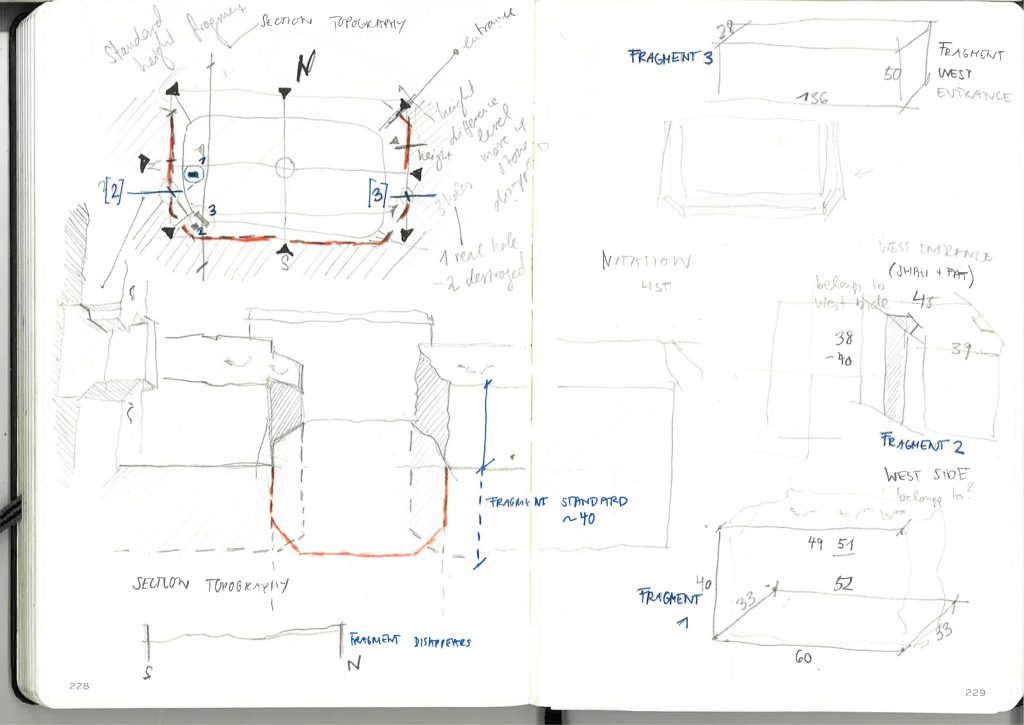 Standard
height fragment
SECTION TOPOGRAPHY
entrance
N
height
difference
level
height
1
[2]
[3]
3
2
3 holes
S
1 real hole
- 2 destroyed
FRAGMENT STANDARD
~40
SECTION TOPOGRAPHY
S
N
FRAGMENT DISAPPEARS
228
28
FRAGMENT 3
50
136
FRAGMENT
WEST
ENTRANCE
NOTATION
LIST
WEST ENTRANCE
(SMALL + FAT)
belongs to
west side
45
38
~40
39
FRAGMENT 2
WEST SIDE
belongs to ?
49 51
52
40
FRAGMENT
1
33
33
60
229